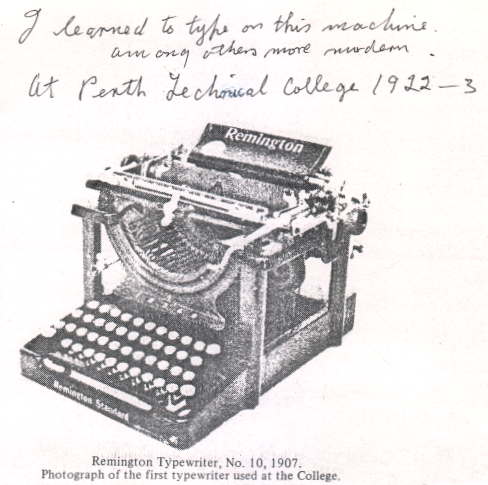 I learned to type on this machine.
among others more modern.
At Perth Technical College 1922-3
Remington
Remington Standard
Remington Typewriter, No. 10, 1907.
Photograph of the first typewriter used at the College.